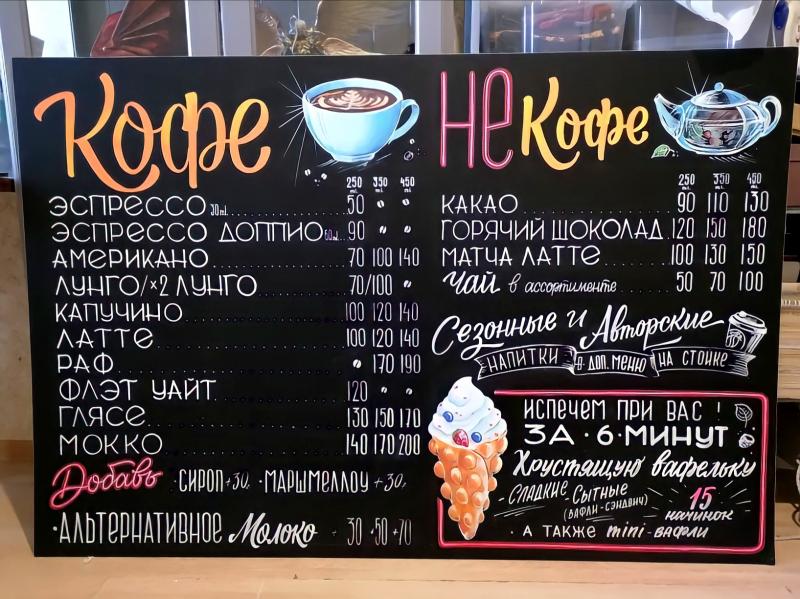 Кофе
250 350 450
ml. ml. ml.
ЭСПРЕССО 30ml. 50
ЭСПРЕССО ДОППИО 60ml. 90
АМЕРИКАНО 70 100 140
ЛУНГО/×2 ЛУНГО 70/100
КАПУЧИНО 100 120 140
ЛАТТЕ 100 120 140
РАФ 170 190
ФЛЭТ УАЙТ 120
ГЛЯСЕ 130 150 170
МОККО 140 170 200
Добавь · СИРОП +30, · МАРШМЕЛЛОУ +30,
· АЛЬТЕРНАТИВНОЕ Молоко + 30 +50 +70
НЕ Кофе
250 350 450
ml. ml. ml.
КАКАО 90 110 130
ГОРЯЧИЙ ШОКОЛАД 120 150 180
МАТЧА ЛАТТЕ 100 130 150
Чай в ассортименте 50 70 100
Сезонные и Авторские
НАПИТКИ В ДОП. МЕНЮ НА СТОЙКЕ
ИСПЕЧЕМ ПРИ ВАС !
ЗА · 6 · МИНУТ
Хрустящую вафельку
- СЛАДКИЕ - СЫТНЫЕ
(ВАФЛИ-СЭНДВИЧ)
15
начинок
· А ТАКЖЕ mini-ВАФЛИ